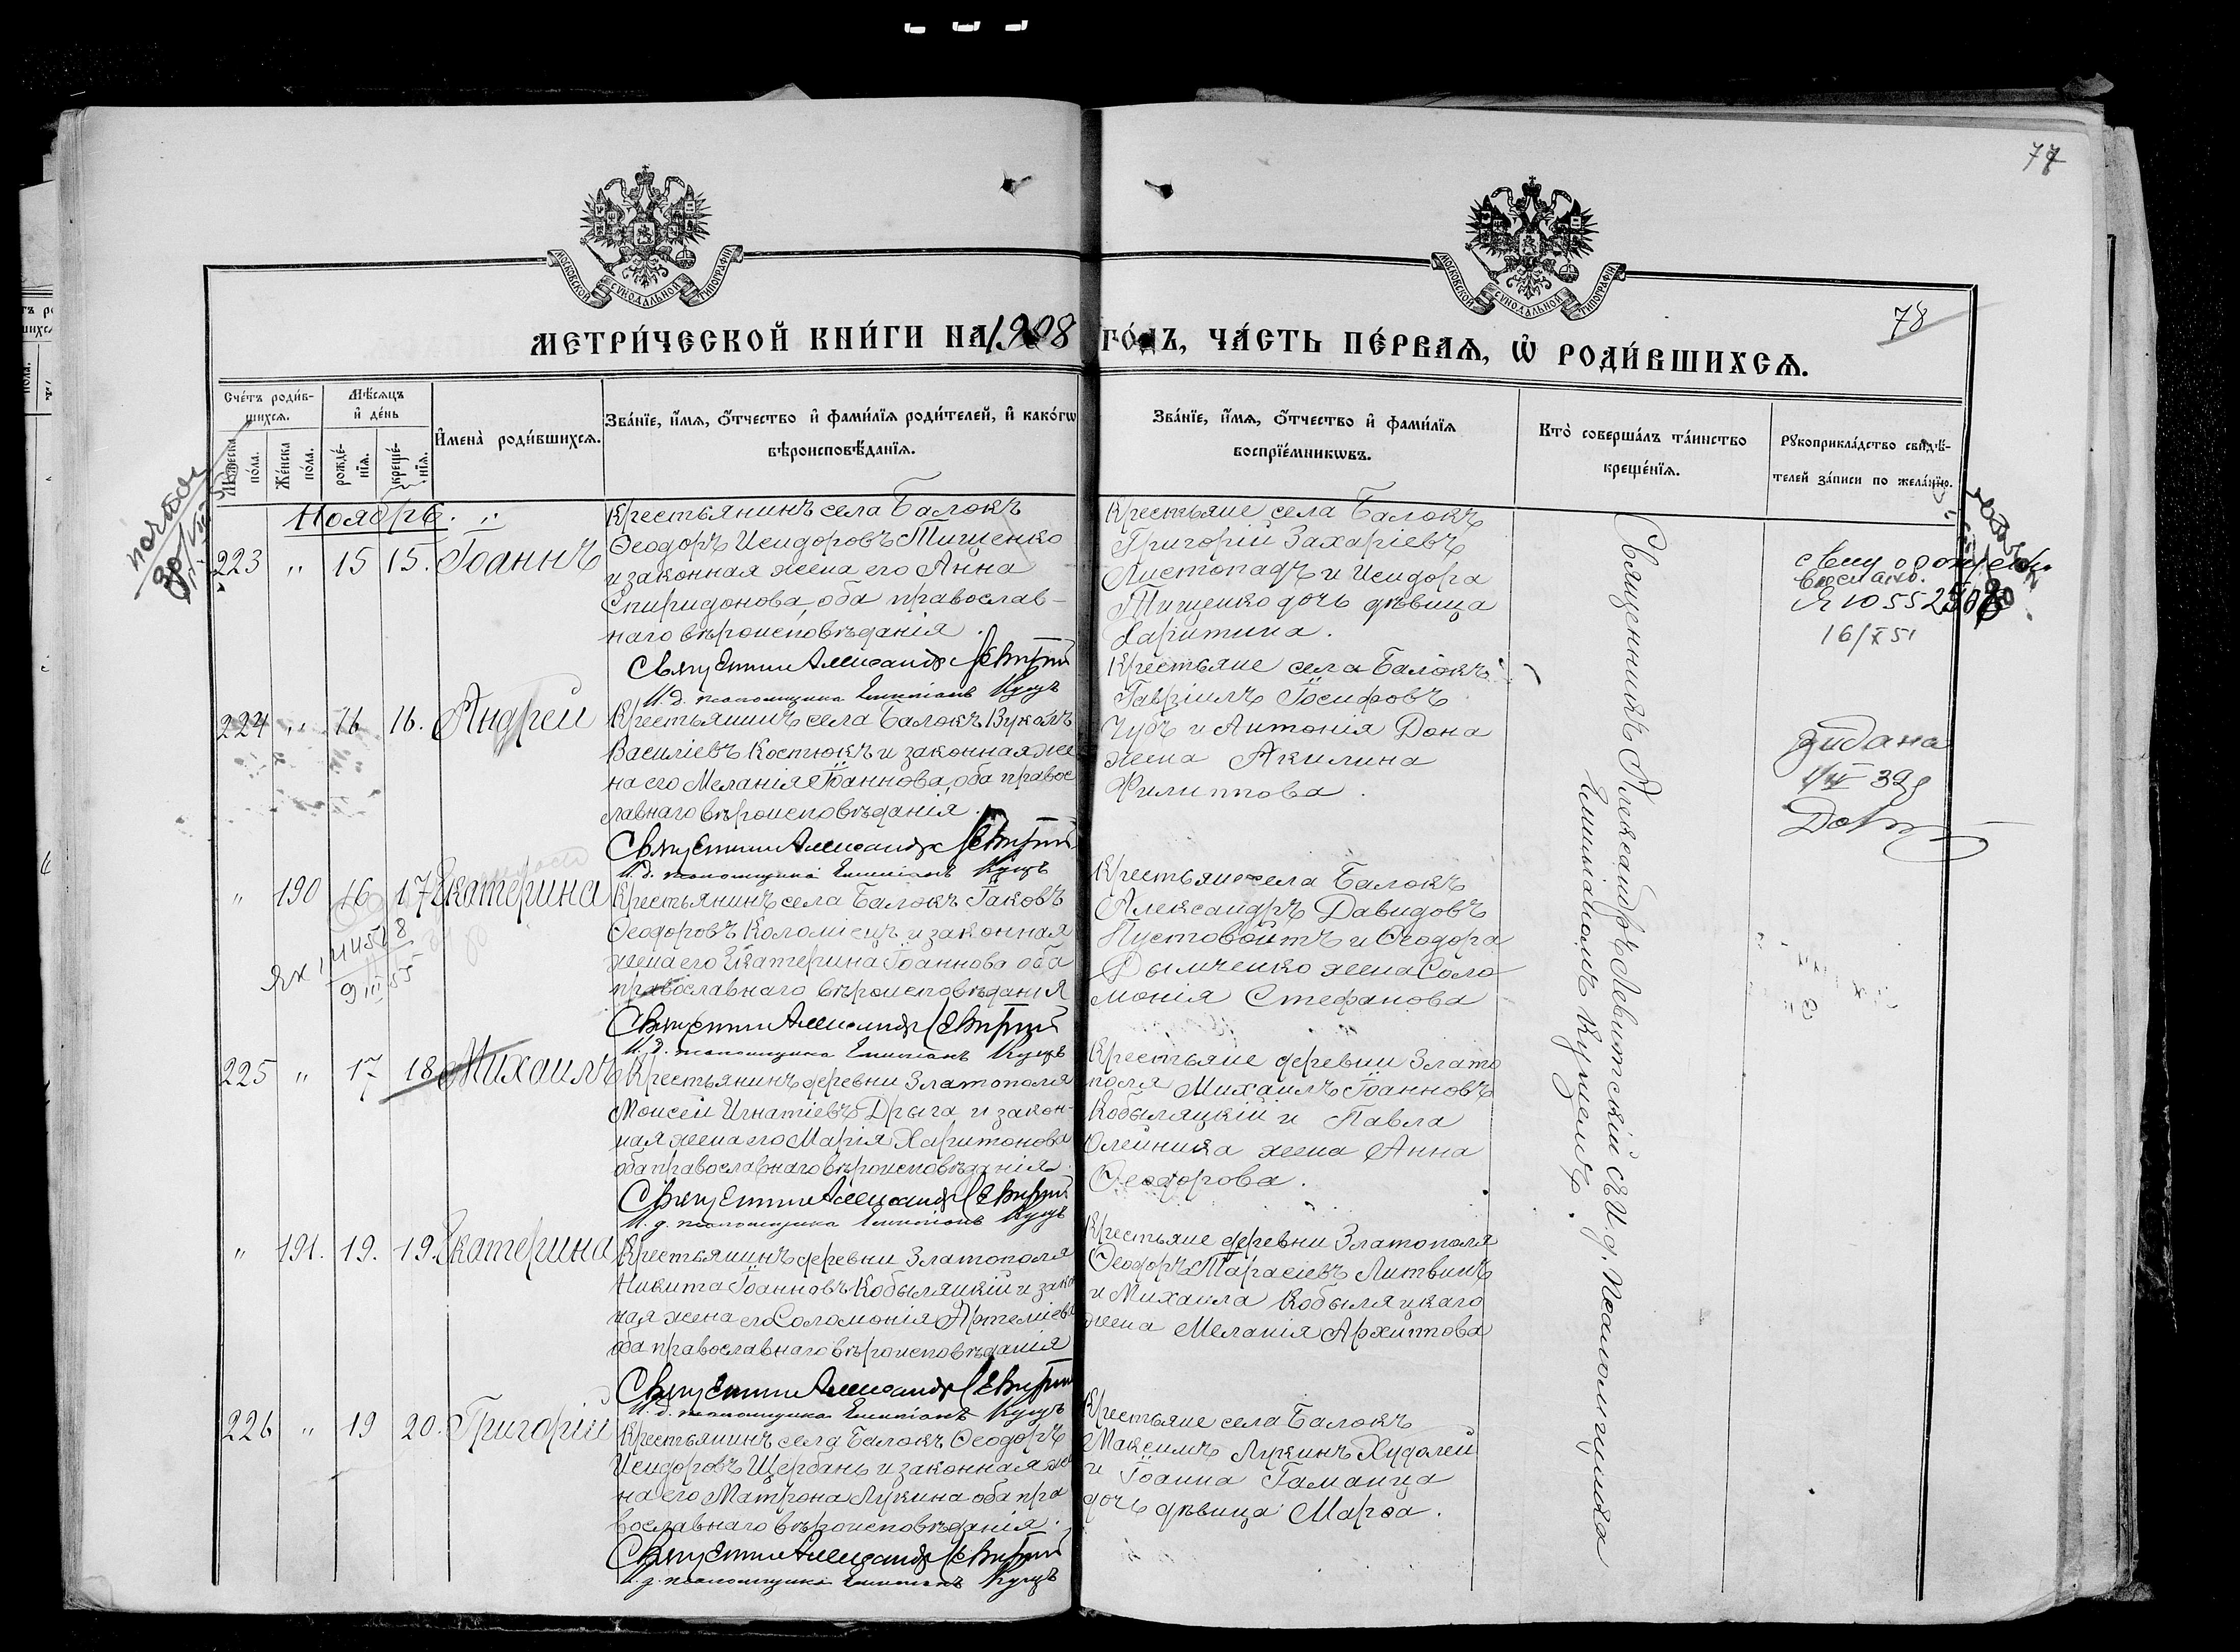 77
МОСКОВСКОЙ СУНОДАЛЬНОЙ ТИПОГРАФІИ
МОСКОВСКОЙ СУНОДАЛЬНОЙ ТИПОГРАФІИ
78
МЕТРИ́ЧЕСКОЙ КНИ́ГИ НА 1908 ГО́ДЪ, ЧА́СТЬ ПЕ́РВАѦ, Ѽ РОДИ́ВШИХСѦ.
Сче́тъ роди́вшихсѧ.
Мѣ́сѧцъ и҆ де́нь
Мꙋ́жеска по́ла.
Же́нска по́ла.
рожде́нїѧ.
креще́нїѧ.
И҆мена̀ роди́вшихсѧ.
Зва́нїе, и҆́мѧ, ѻ҆́тчество и҆ фами́лїѧ роди́телей, и҆ како́гѡ
вѣроисповѣ́данїѧ.
Зва́нїе, и҆́мѧ, ѻ҆́тчество и҆ фами́лїѧ
воспрїе́мникѡвъ.
Кто̀ соверша́лъ та́инство
креще́нїѧ.
Рꙋкоприкла́дство свидѣ́-
телей за́писи по жела́нїю.
Ноябрь.
223 " 15 15. Іоаннъ
Крестьянинъ села Балокъ
Ѳеодоръ Исидоровъ Тищенко
и законная жена его Анна
Спиридонова, оба православ-
наго вѣроисповѣданія.
Священникъ Александръ Левитскій
И. д. псаломщика Емиліанъ Куцъ
Крестьяне села Балокъ
Григорій Захаріевъ
Листопадъ и Исидора
Тищенко дочь дѣвица
Харитина.
16/X 51
224 " 16 16. Андрей
Крестьянинъ села Балокъ Вуколъ
Василіевъ Костюкъ и законная же
на его Меланія Іоаннова, оба правос
лавнаго вѣроисповѣданія.
Священникъ Александръ Левитскій
И. д. псаломщика Емиліанъ Куцъ
Крестьяне села Балокъ
Гавріилъ Іосифовъ
Чубъ и Антонія Дона
жена Акилина
Филиппова.
видана
" 190 16 17 Екатерина
9 III 55
Крестьянинъ села Балокъ Іаковъ
Ѳеодоровъ Коломіецъ и законная
жена его Екатерина Іоаннова оба
православнаго вѣроисповѣданія
Священникъ Александръ Левитскій
И. д. псаломщика Емиліанъ Куцъ
Крестьяне села Балокъ
Александръ Давидовъ
Пустовойтъ и Ѳеодора
Дымченко жена Соло
монія Стефанова
225 " 17 18 Михаилъ
Крестьянинъ деревни Златополя
Моисей Игнатіевъ Дрыга и закон-
ная жена его Марія Харитонова
оба православнаго вѣроисповѣданія.
Священникъ Александръ Левитскій
И. д. псаломщика Емиліанъ Куцъ
Крестьяне деревни Злато
поля Михаилъ Іоанновъ
Кобыляцкій и Павла
Олейника жена Анна
Ѳеодорова.
" 191. 19. 19. Екатерина
Крестьянинъ деревни Златополя
Никита Іоанновъ Кобыляцкій и зако
ная жена его Соломонія Артеміева
оба православнаго вѣроисповѣданія
Священникъ Александръ Левитскій
И. д. псаломщика Емиліанъ Куцъ
Крестьяне деревни Златополя
Ѳеодоръ Тарасіевъ Литвинъ
и Михаила Кобыляцкаго
жена Меланія Архиппова
226 " 19 20. Григорій
Крестьянинъ села Балокъ Ѳеодоръ
Исидоровъ Щербань и законная же
на его Матрона Лукина оба пра
вославнаго вѣроисповѣданія.
Священникъ Александръ Левитскій
И. д. псаломщика Емиліанъ Куцъ
Крестьяне села Балокъ
Максимъ Лукинъ Худолей
и Іоанна Гаманца
дочь дѣвица Марѳа.
Священникъ Александръ Левитскій съ И. д. Псаломщика
Емиліаномъ Куцемъ.